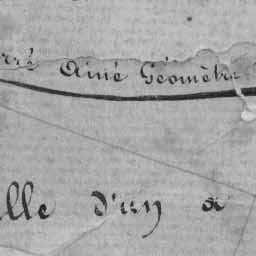 Ainé Géomètre
lle d'uy a